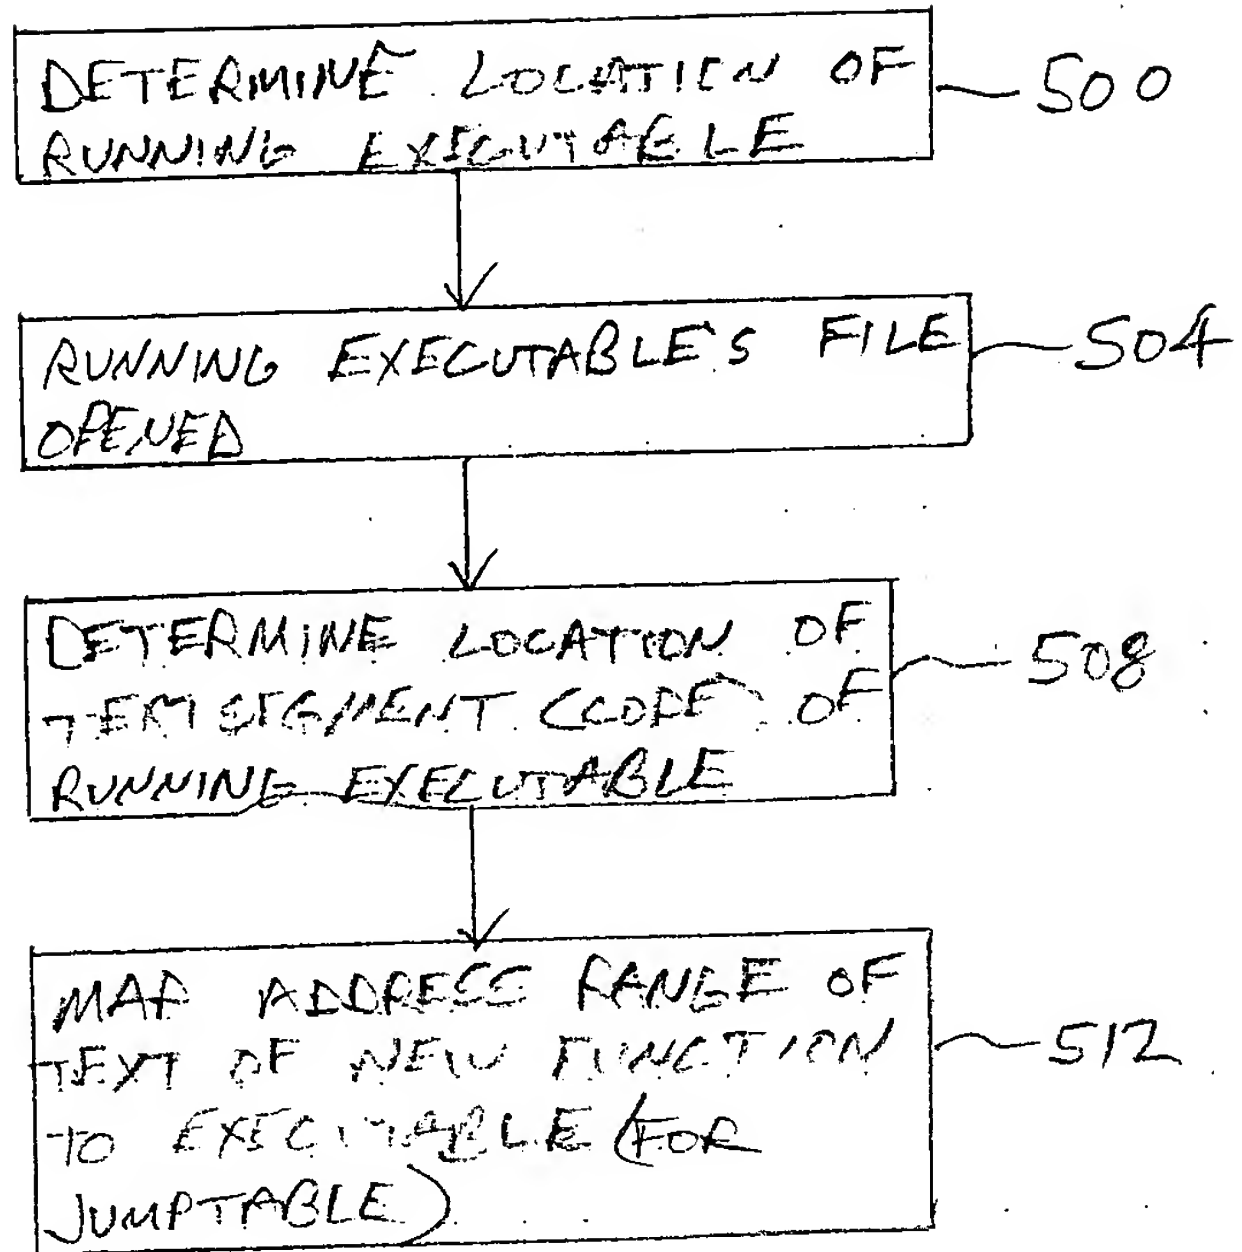 DETERMINE LOCATION OF
RUNNING EXECUTABLE
500
RUNNING EXECUTABLE'S FILE
OPENED
504
DETERMINE LOCATION OF
TEXT SEGMENT (CODE) OF
RUNNING EXECUTABLE
508
MAP ADDRESS RANGE OF
TEXT OF NEW FUNCTION
TO EXECUTABLE (FOR
JUMPTABLE)
512